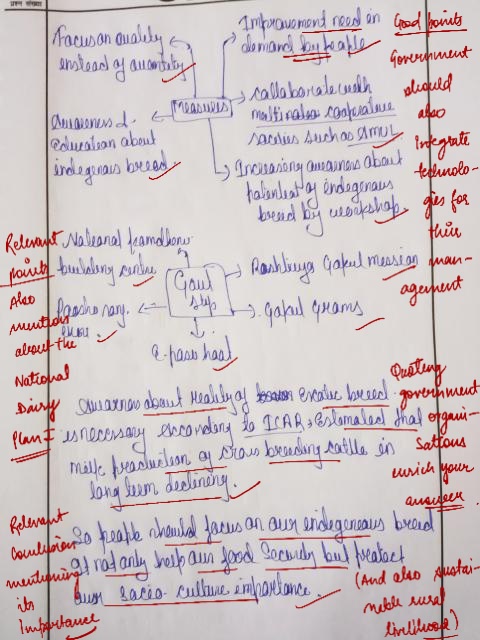 प्रश्न संख्या
Focus on quality
instead of quantity
Improvement need in
demand by people
Measures
Awareness &
Education about
indegenous breed.
collaborate with
multination cooperative
socities such as AMUL
Increasing awareness about
of indegenous
breed by workshop
Good points
Government
should
also
integrate
technolo-
gies for
their
man-
agement
building centre
Govt
step
Rashtriya Gokul mession
Gokul Grams
E-pasu haat
Relevant
points
Also
mention
about the
National
Dairy
Plan-I
Awarness about reality of Exotic breed
is necessary according to ICAR, Estimated that
milk production of cross breeding cattle in
long term declening.
Quoting
government
organi-
sations
enrich your
answer.
So people should focus on our indegeneous breed
it not only help our food Security but protect
our socio-culture importance.
Relevant
Conclusion
mentioning
its
Importance
(And also sustai-
nable rural
livelihood)